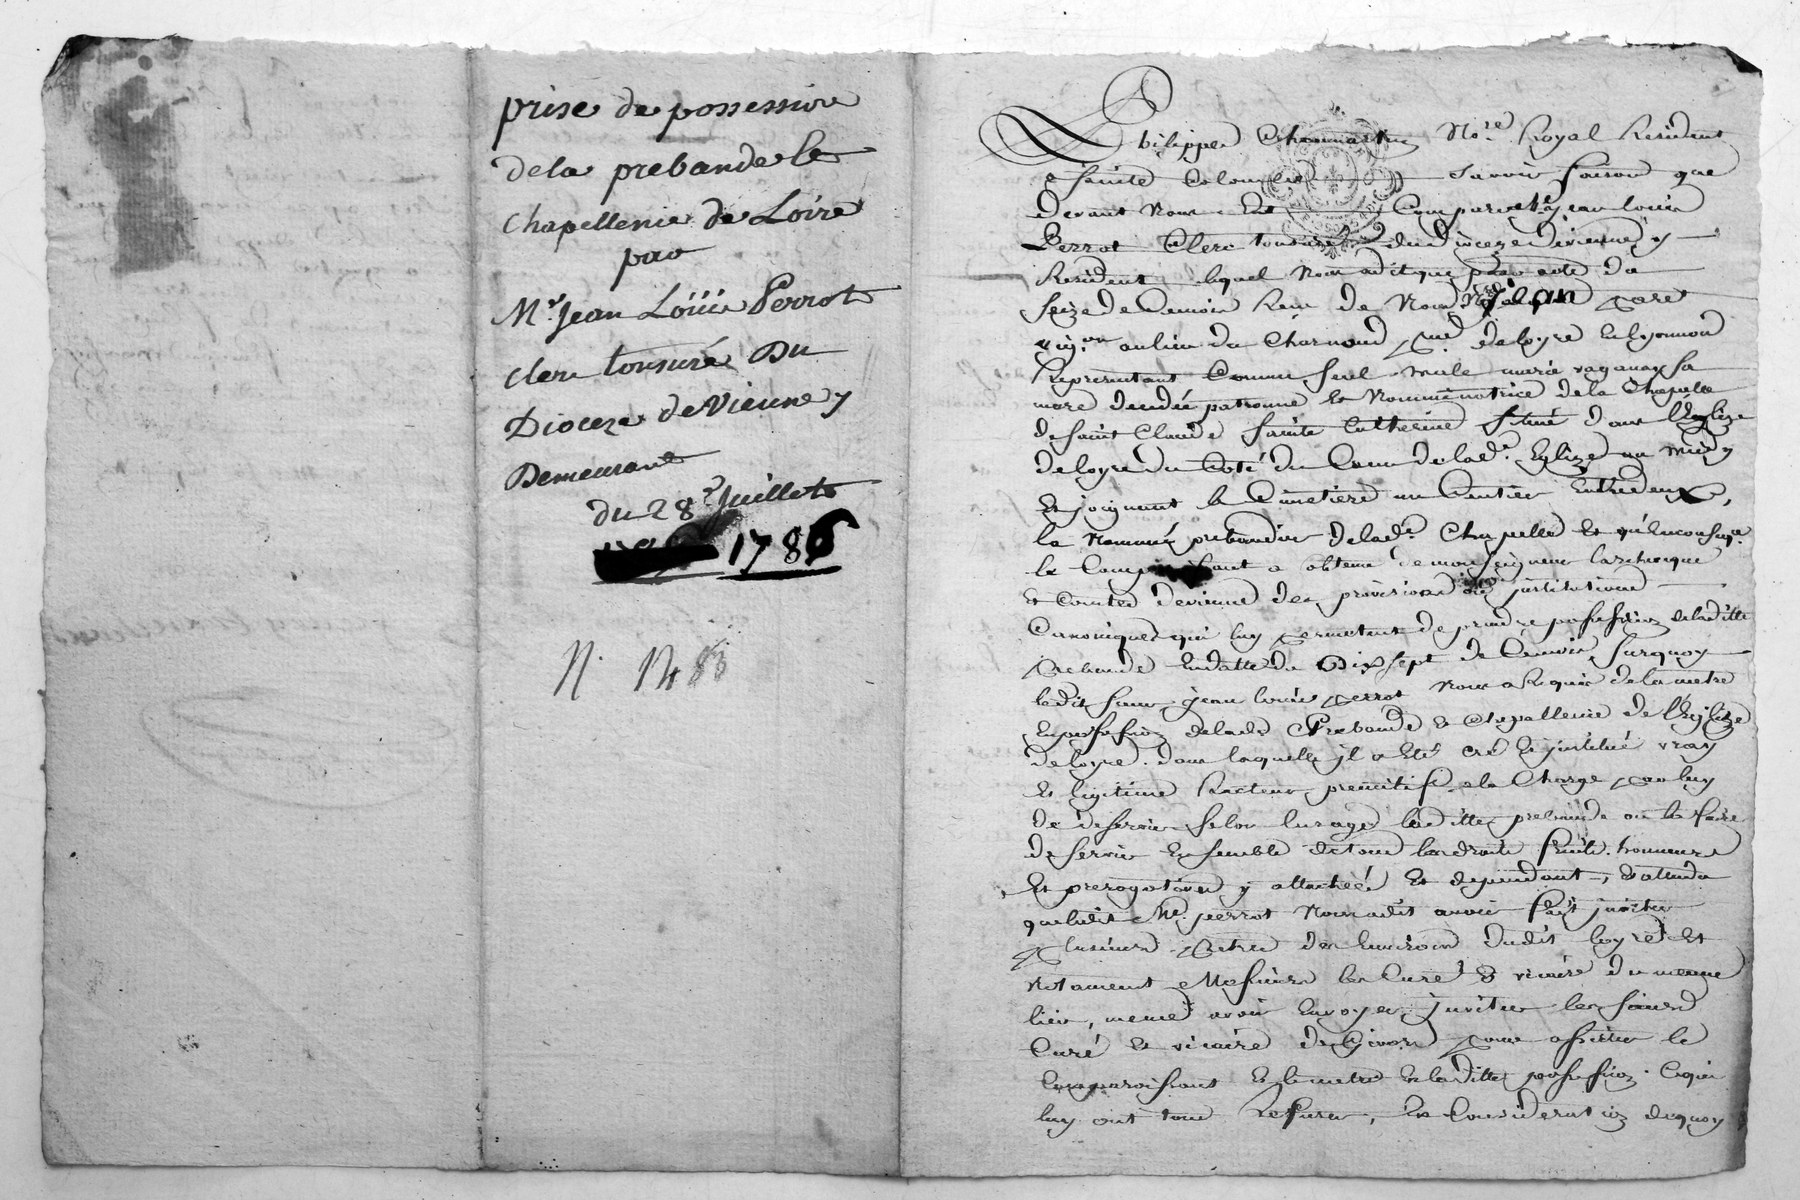 prise de possession
de la prebande le
Chapellenie de Loire
par
Mr. Jean Loüis Perrot
clerc tonsuré Du
Dioceze de Vienne y
Demeurant
du 28e. Juillet
1786
N. 1483
Philippe Chaumartin No.re Royal Resident
a sainte Colombe savoir faisons que
devant Nous Est Comparu Me jean louis
Perrot Clerc tonsuré du dioceze de vienne y
Resident lequel Nous a dit que par acte du
seize de Ce mois Reçu de Nous No.re
au lieu du Charnoud de loyre en lyonnois
Representant Comme seul male marie vaganay sa
mere decedée patronne et Nominatrice de la Chapelle
de saint Claude sainte Catherine situé dans l'Eglize
de loyre du Coté du Coeur de lad.e Eglize au midy
Et joignant le Cimetiere un Sentier Entredeux,
la Nommé prebandier de lad.e Chapelle Et qu'en consequ.ce
le Comparoissant a obtenu de monseigneur l'archevêque
Et Comte de vienne des provisions et institutions
Canoniques qui luy permettent de prendre possession de laditte
prebande En datte du Dix sept de Ce mois, surquoy
ledit sieur jean louis perrot Nous a Requis de le mettre
En possession de lade Prebande et Chapellenie de l'Eglize
de loyre dans laquelle il a Eté crée Et institué vray
Et legitime Recteur primitif a la Charge par luy
de deservir selon l'usage laditte prebande ou la faire
deservir Ensemble de tous les droits fruits honneurs
Et prerogatives y attachées Et dependant, Et attendu
que ledit Me. perrot Nous a dit avoir fait inviter
plusieurs pretres des Environs dudit loyre Et
Notament Messieurs les Curé Et vicaire du meme
lieu, meme avoir Envoyer inviter les sieurs
Curé Et vicaire de Givors pour assister le
Comparoissant Et le mettre En laditte possession. Ce qui
luy ont tous Refuser, En Consideration dequoy